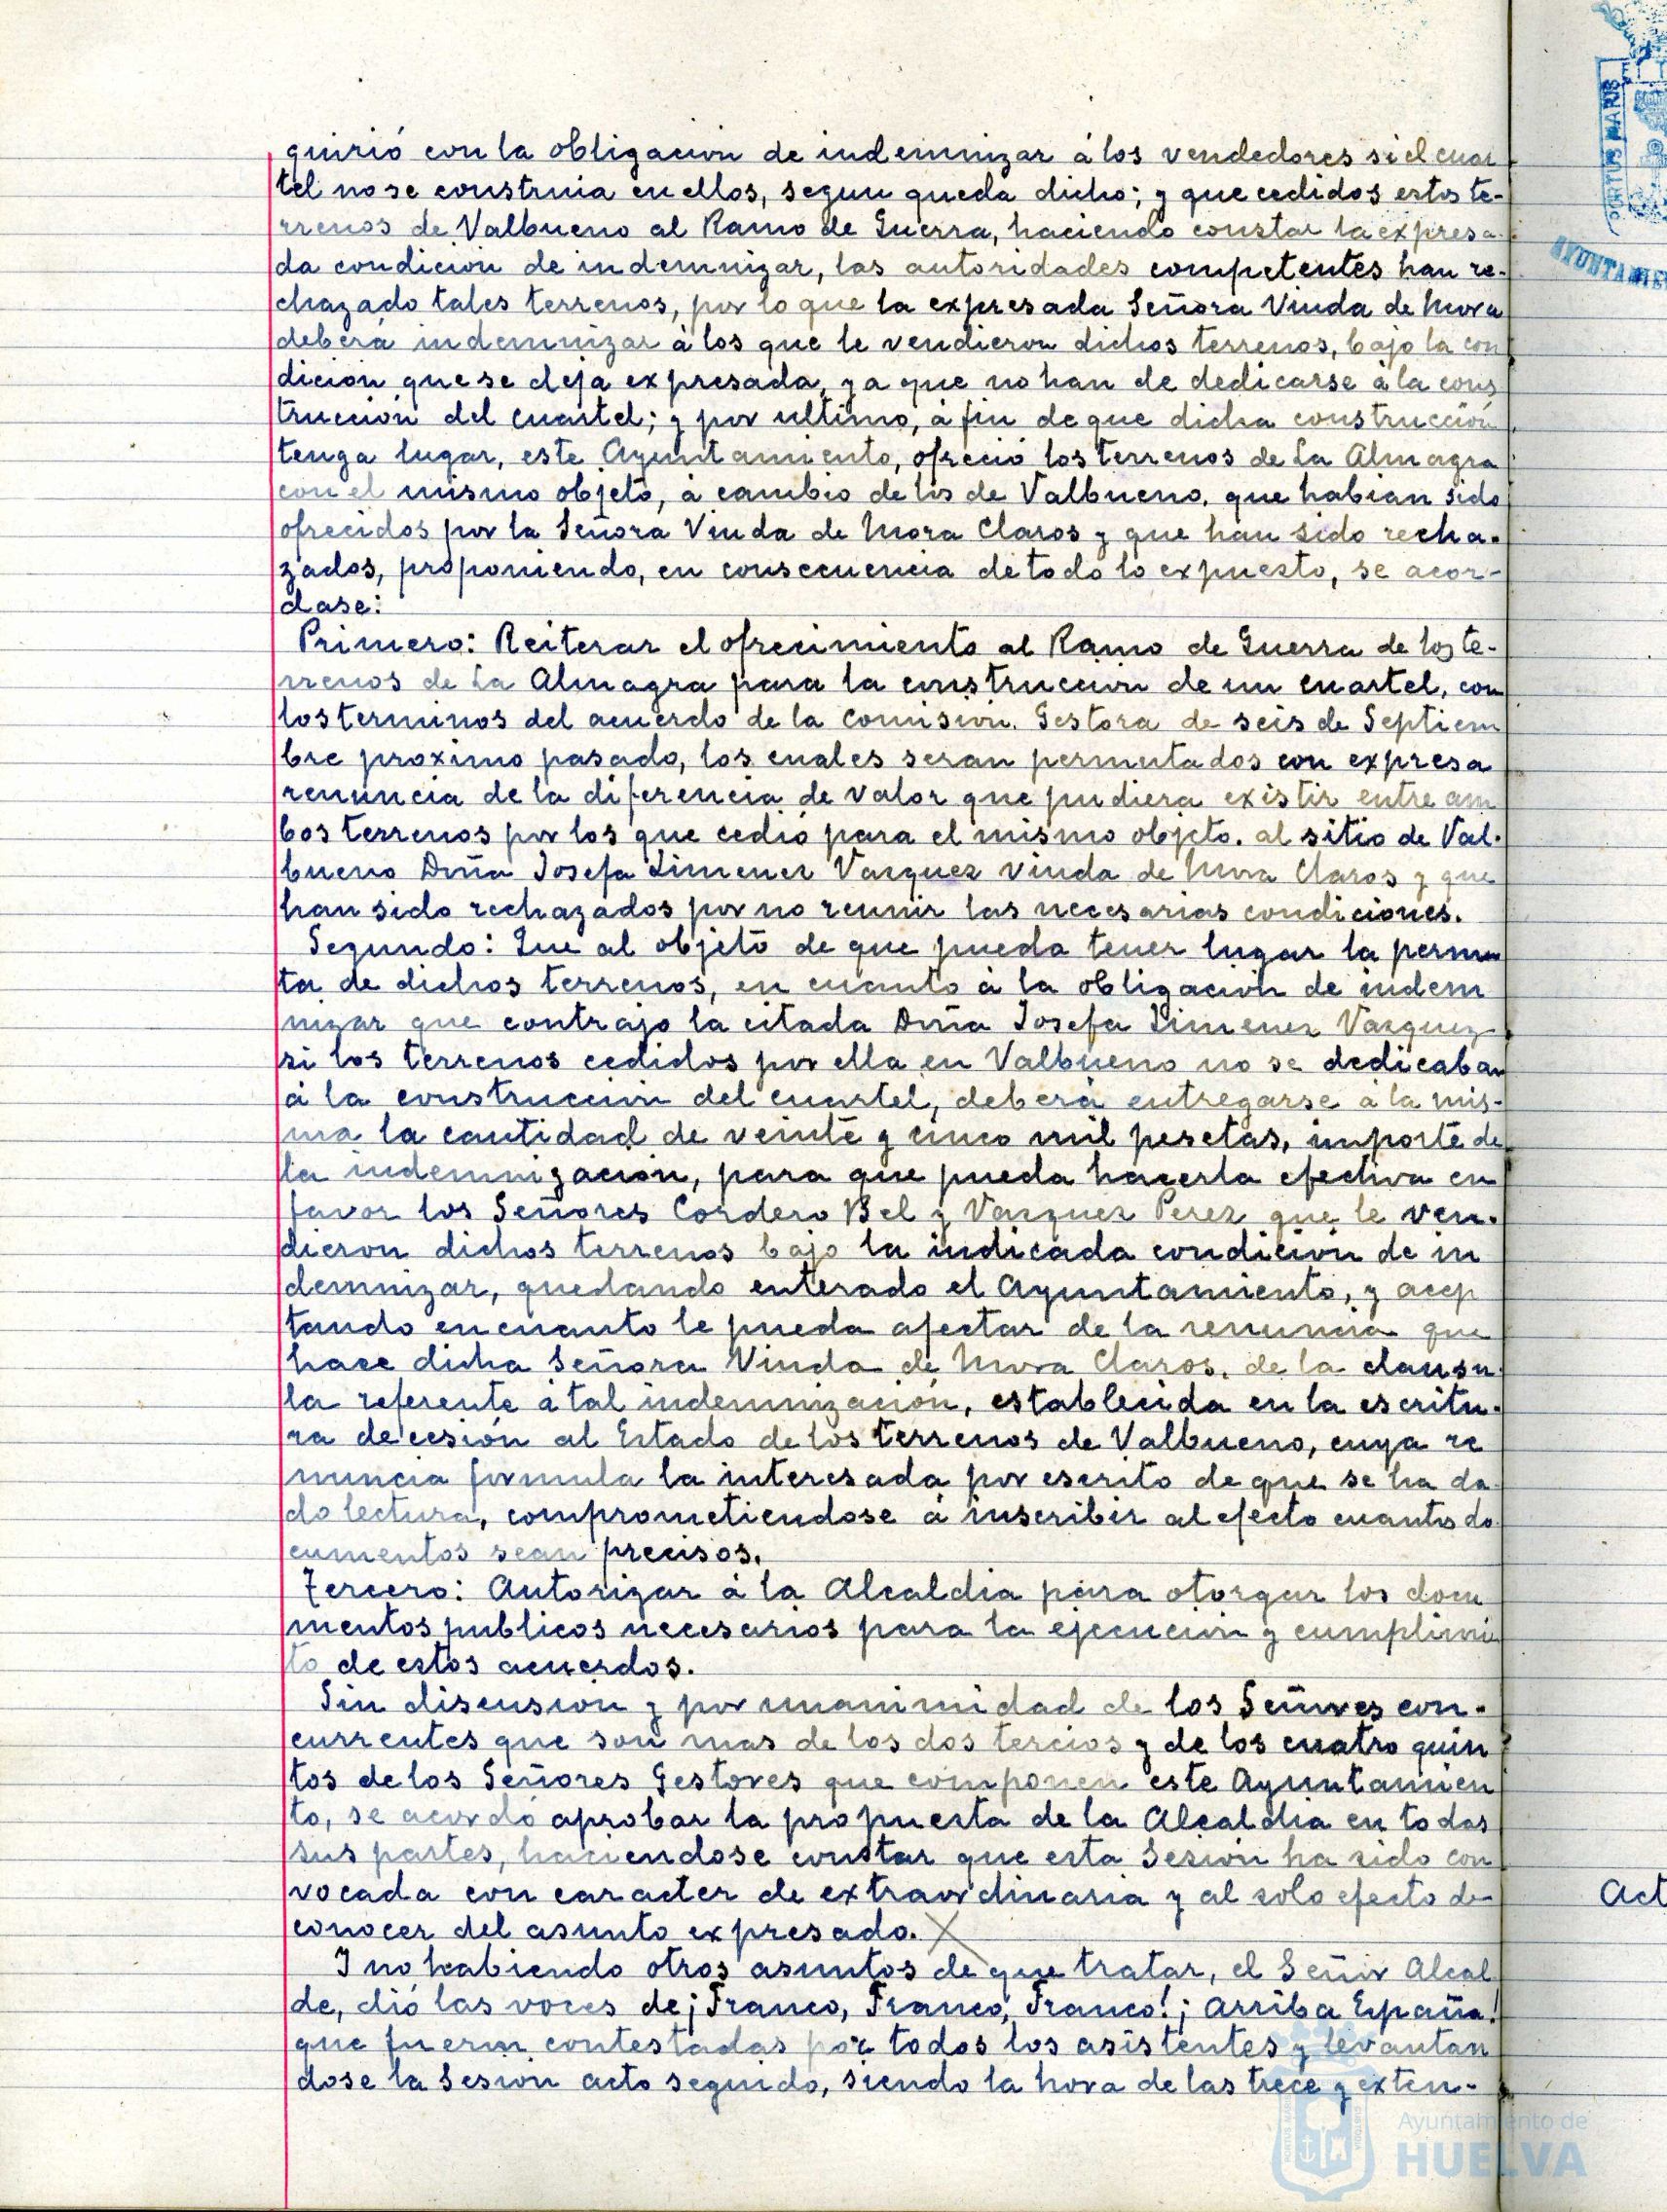 quirió con la obligacion de indemnizar á los vendedores si el cuar
tel no se construia en ellos, segun queda dicho; y que cedidos estos te-
rrenos de Valbueno al Ramo de Guerra, haciendo constar la expresa-
da condicion de indemnizar, las autoridades competentes han re-
chazado tales terrenos, por lo que la expresada Señora Viuda de Mora
deberá indemnizar á los que le vendieron dichos terrenos, bajo la con
dicion que se deja expresada, ya que no han de dedicarse á la cons
trucción del cuartel; y por ultimo, á fin de que dicha construcción
tenga lugar, este Ayuntamiento, ofreció los terrenos de La Almagra
con el mismo objeto, á cambio de los de Valbueno, que habian sido
ofrecidos por la Señora Viuda de Mora Claros y que han sido recha-
zados, proponiendo, en consecuencia de todo lo expuesto, se acor-
dase:
Primero: Reiterar el ofrecimiento al Ramo de Guerra de los te-
rrenos de La Almagra para la construccion de un cuartel, con
los terminos del acuerdo de la Comision Gestora de seis de Septiem
bre proximo pasado, los cuales seran permutados con expresa
renuncia de la diferencia de valor que pudiera existir entre am
bos terrenos por los que cedió para el mismo objeto, al sitio de Val-
bueno Dña Josefa Jimenez Vazquez viuda de Mora Claros y que
han sido rechazados por no reunir las necesarias condiciones.
Segundo: Que al objeto de que pueda tener lugar la permu
ta de dichos terrenos, en cuanto á la obligacion de indem
nizar que contrajo la citada Dña Josefa Jimenez Vazquez
si los terrenos cedidos por ella en Valbueno no se dedicaban
á la construccion del cuartel, deberá entregarse á la mis-
ma la cantidad de veinte y cinco mil pesetas, importe de
la indemnización, para que pueda hacerla efectiva en
favor los Señores Cordero Bel y Vazquez Perez que le ven-
dieron dichos terrenos bajo la indicada condición de in
demnizar, quedando enterado el Ayuntamiento, y acep
tando en cuanto le pueda afectar de la renuncia que
hace dicha Señora Viuda de Mora Claros, de la clausu-
la referente á tal indemnización, establecida en la escritu-
ra de cesión al Estado de los terrenos de Valbueno, cuya re
nuncia formula la interesada por escrito de que se ha da
do lectura, comprometiendose á inscribir al efecto cuantos do
cumentos sean precisos.
Tercero: Autorizar á la Alcaldia para otorgar los docu
mentos publicos necesarios para la ejecucion y cumplimi
to de estos acuerdos.
Sin discusion y por unanimidad de los Señores con-
currentes que son mas de los dos tercios y de los cuatro quin
tos de los Señores Gestores que componen este Ayuntamien
to, se acordó aprobar la propuesta de la Alcaldia en todas
sus partes, haciendose constar que esta Sesion ha sido con
vocada con caracter de extraordinaria y al solo efecto de
conocer del asunto expresado.
Y no habiendo otros asuntos de que tratar, el Señor Alcal
de, dió las voces de ¡Franco, Franco, Franco! ¡Arriba España!
que fueron contestadas por todos los asistentes y levantan
dose la Sesion acto seguido, siendo la hora de las trece y exten-
Act
PORTUS MARIS
AYUNTAMIE
Ayuntamiento de
HUELVA